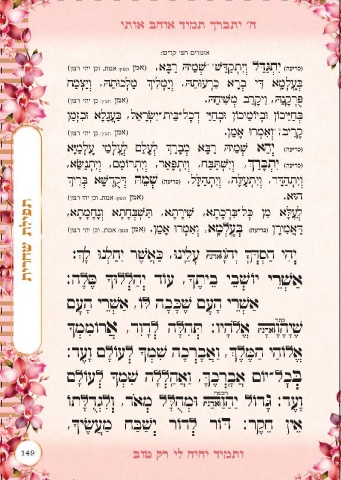 ה' יתברך תמיד אוהב אותי
אומרים חצי קדיש:
(כריעה) יִתְגַּדַּל וְיִתְקַדַּשׁ שְׁמֵהּ רַבָּא, (אמן
בְּעָלְמָא דִּי בְרָא כִרְעוּתֵהּ, וְיַמְלִיךְ מַלְכוּתֵהּ, וְיַצְמַח
פֻּרְקָנֵהּ, וִיקָרֵב מְשִׁיחֵהּ, (אמן
בְּחַיֵּיכוֹן וּבְיוֹמֵיכוֹן וּבְחַיֵּי דְכָל־בֵּית־יִשְׂרָאֵל, בַּעֲגָלָא וּבִזְמַן
קָרִיב, וְאִמְרוּ אָמֵן. (אמן
(כריעה) יְהֵא שְׁמֵהּ רַבָּא מְבָרַךְ לְעָלַם לְעָלְמֵי עָלְמַיָּא
(כריעה) יִתְבָּרַךְ, וְיִשְׁתַּבַּח, וְיִתְפָּאַר, וְיִתְרוֹמַם, וְיִתְנַשֵּׂא,
וְיִתְהַדָּר, וְיִתְעַלֶּה, וְיִתְהַלָּל, (כריעה) שְׁמֵהּ דְּקֻדְשָׁא בְּרִיךְ
הוּא.
לְעֵלָּא מִן כָּל־בִּרְכָתָא, שִׁירָתָא, תֻּשְׁבְּחָתָא וְנֶחָמָתָא,
דַּאֲמִירָן (כריעה) בְּעָלְמָא, וְאִמְרוּ אָמֵן. (אמן
יְהִי חַסְדְּךָ יְהֹוָה עָלֵינוּ, כַּאֲשֶׁר יִחַלְנוּ לָךְ:
אַשְׁרֵי יוֹשְׁבֵי בֵיתֶךָ, עוֹד יְהַלְלוּךָ סֶּלָה:
אַשְׁרֵי הָעָם שֶׁכָּכָה לּוֹ, אַשְׁרֵי הָעָם
שֶׁיְהֹוָה אֱלֹהָיו: תְּהִלָּה לְדָוִד, אֲרוֹמִמְךָ
אֱלוֹהַי הַמֶּלֶךְ, וַאֲבָרְכָה שִׁמְךָ לְעוֹלָם וָעֶד:
בְּכָל־יוֹם אֲבָרְכֶךָּ, וַאֲהַלְלָה שִׁמְךָ לְעוֹלָם
וָעֶד: גָּדוֹל יְהֹוָה וּמְהֻלָּל מְאֹד, וְלִגְדֻלָּתוֹ
אֵין חֵקֶר: דּוֹר לְדוֹר יְשַׁבַּח מַעֲשֶׂיךָ,
ותמיד יהיה לי רק טוב
תפילת שחרית
149